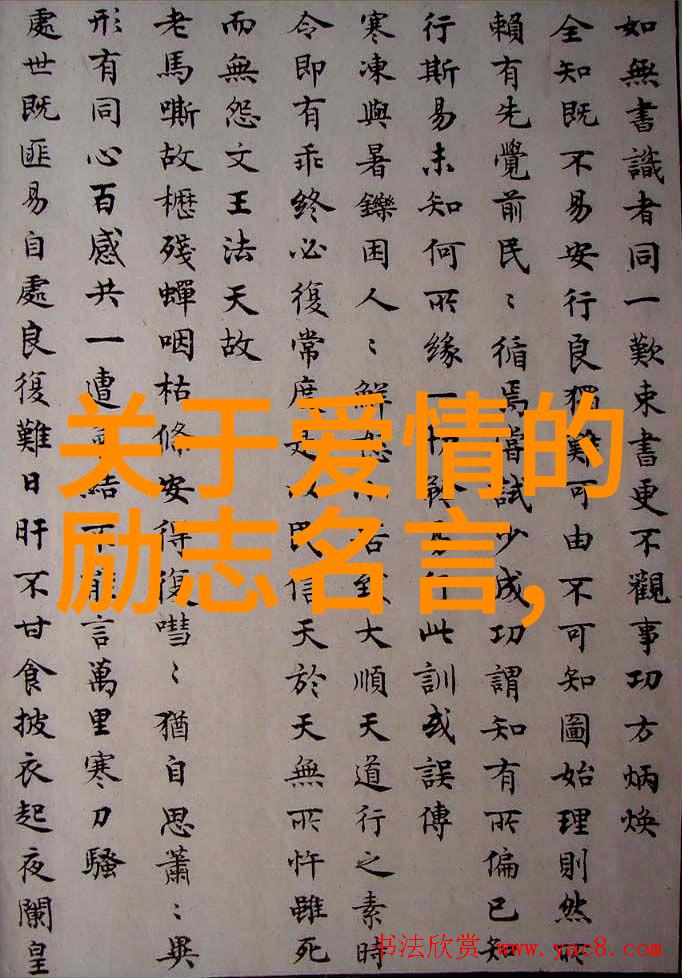 如無書識者同一歎束書更不觀事功方炳煥
全知既不易安行良獨難可由不可知圖始理則然所
賴有先覺前民〻循焉試少成功謂知有所偏已知
行斯易未知何所緣一此訓或誤傳
寒凍與暑鑠困人〻鮮怨大順天道行之素時
令即有乖終必復常度是以民信天於天無所忤雖死
而無怨文王法天故
老馬嘶故櫪殘蟬咽枯條安得復嘒〻猶自思蕭〻異
形有同心百感共一遭不能言萬里寒刀騷
處世既匪易自處良復難日旰不甘食披衣起夜闌皇
关于爱情的
励志名言,
书法欣赏 www.yac8.com